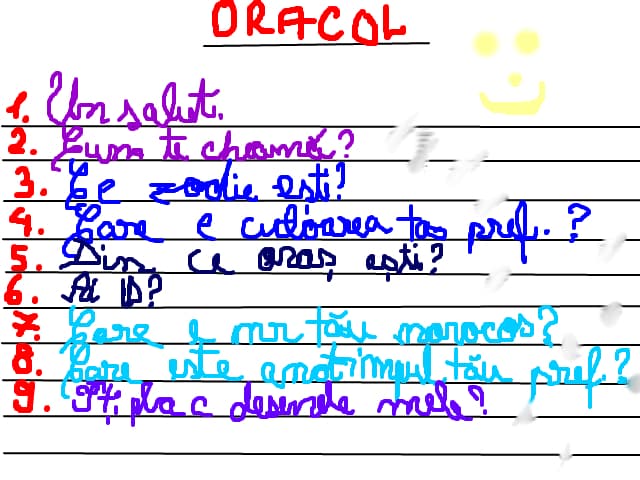 ORACOL
1. Un salut.
2. Cum te cheamă?
3. Ce zodie ești?
4. Care e culoarea ta pref. ?
5. Din ce oraș ești?
6. Ai ID?
7. Care e nr tău norocos?
8. Care este anotimpul tău pref.?
9. Îți plac desenele mele?